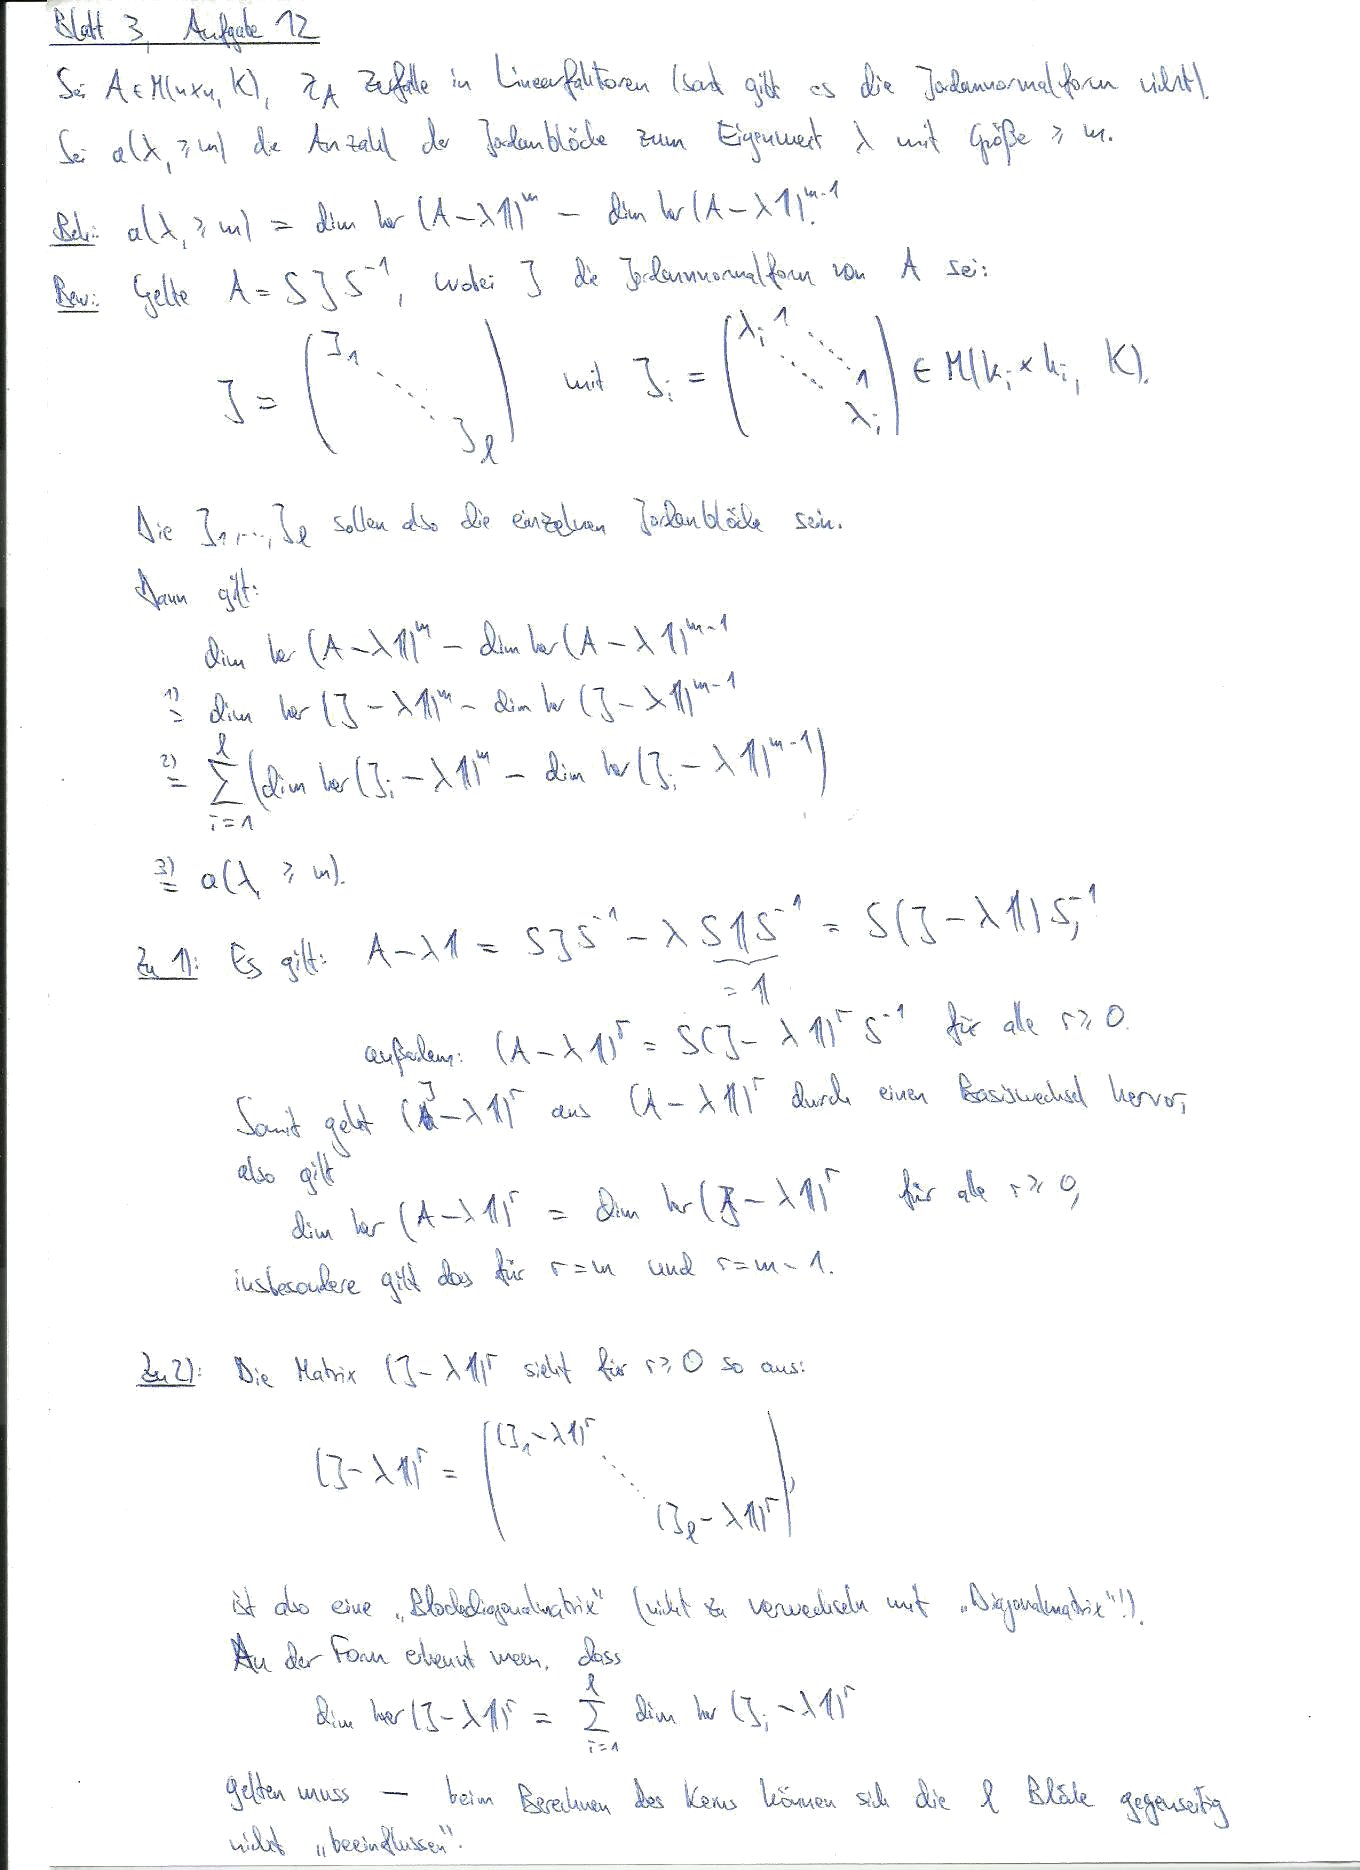 Blatt 3, Aufgabe 12
Sei A ∈ M(n×n, K), χ_A zerfalle in Linearfaktoren (sonst gibt es die Jordannormalform nicht).
Sei a(λ, ≥ m) die Anzahl der Jordanblöcke zum Eigenwert λ mit Größe ≥ m.
Beh.: a(λ, ≥ m) = dim ker (A − λ𝟙)^m − dim ker (A − λ𝟙)^{m−1}.
Bew.: Gelte A = S J S^{−1}, wobei J die Jordannormalform von A sei:
J = ( J_1 ⋱ J_l ) mit J_i = ( λ_i 1 ⋱ ⋱ 1 λ_i ) ∈ M(k_i × k_i, K).
Die J_1, ..., J_l sollen also die einzelnen Jordanblöcke sein.
Dann gilt:
dim ker (A − λ𝟙)^m − dim ker (A − λ𝟙)^{m−1}
1) = dim ker (J − λ𝟙)^m − dim ker (J − λ𝟙)^{m−1}
2) = ∑_{i=1}^{l} (dim ker (J_i − λ𝟙)^m − dim ker (J_i − λ𝟙)^{m−1})
3) = a(λ, ≥ m).
Zu 1): Es gilt: A − λ𝟙 = S J S^{−1} − λ S𝟙S^{−1} = S(J − λ𝟙) S^{−1},
= 𝟙
außerdem: (A − λ𝟙)^r = S(J − λ𝟙)^r S^{−1} für alle r ≥ 0.
Somit geht (J − λ𝟙)^r aus (A − λ𝟙)^r durch einen Basiswechsel hervor,
also gilt
dim ker (A − λ𝟙)^r = dim ker (J − λ𝟙)^r für alle r ≥ 0,
insbesondere gilt das für r = m und r = m − 1.
Zu 2): Die Matrix (J − λ𝟙)^r sieht für r ≥ 0 so aus:
(J − λ𝟙)^r = ( (J_1 − λ𝟙)^r ⋱ (J_l − λ𝟙)^r ),
ist also eine „Blockdiagonalmatrix" (nicht zu verwechseln mit „Diagonalmatrix"!).
An der Form erkennt man, dass
dim ker (J − λ𝟙)^r = ∑_{i=1}^{l} dim ker (J_i − λ𝟙)^r
gelten muss — beim Berechnen des Kerns können sich die l Blöcke gegenseitig
nicht „beeinflussen".